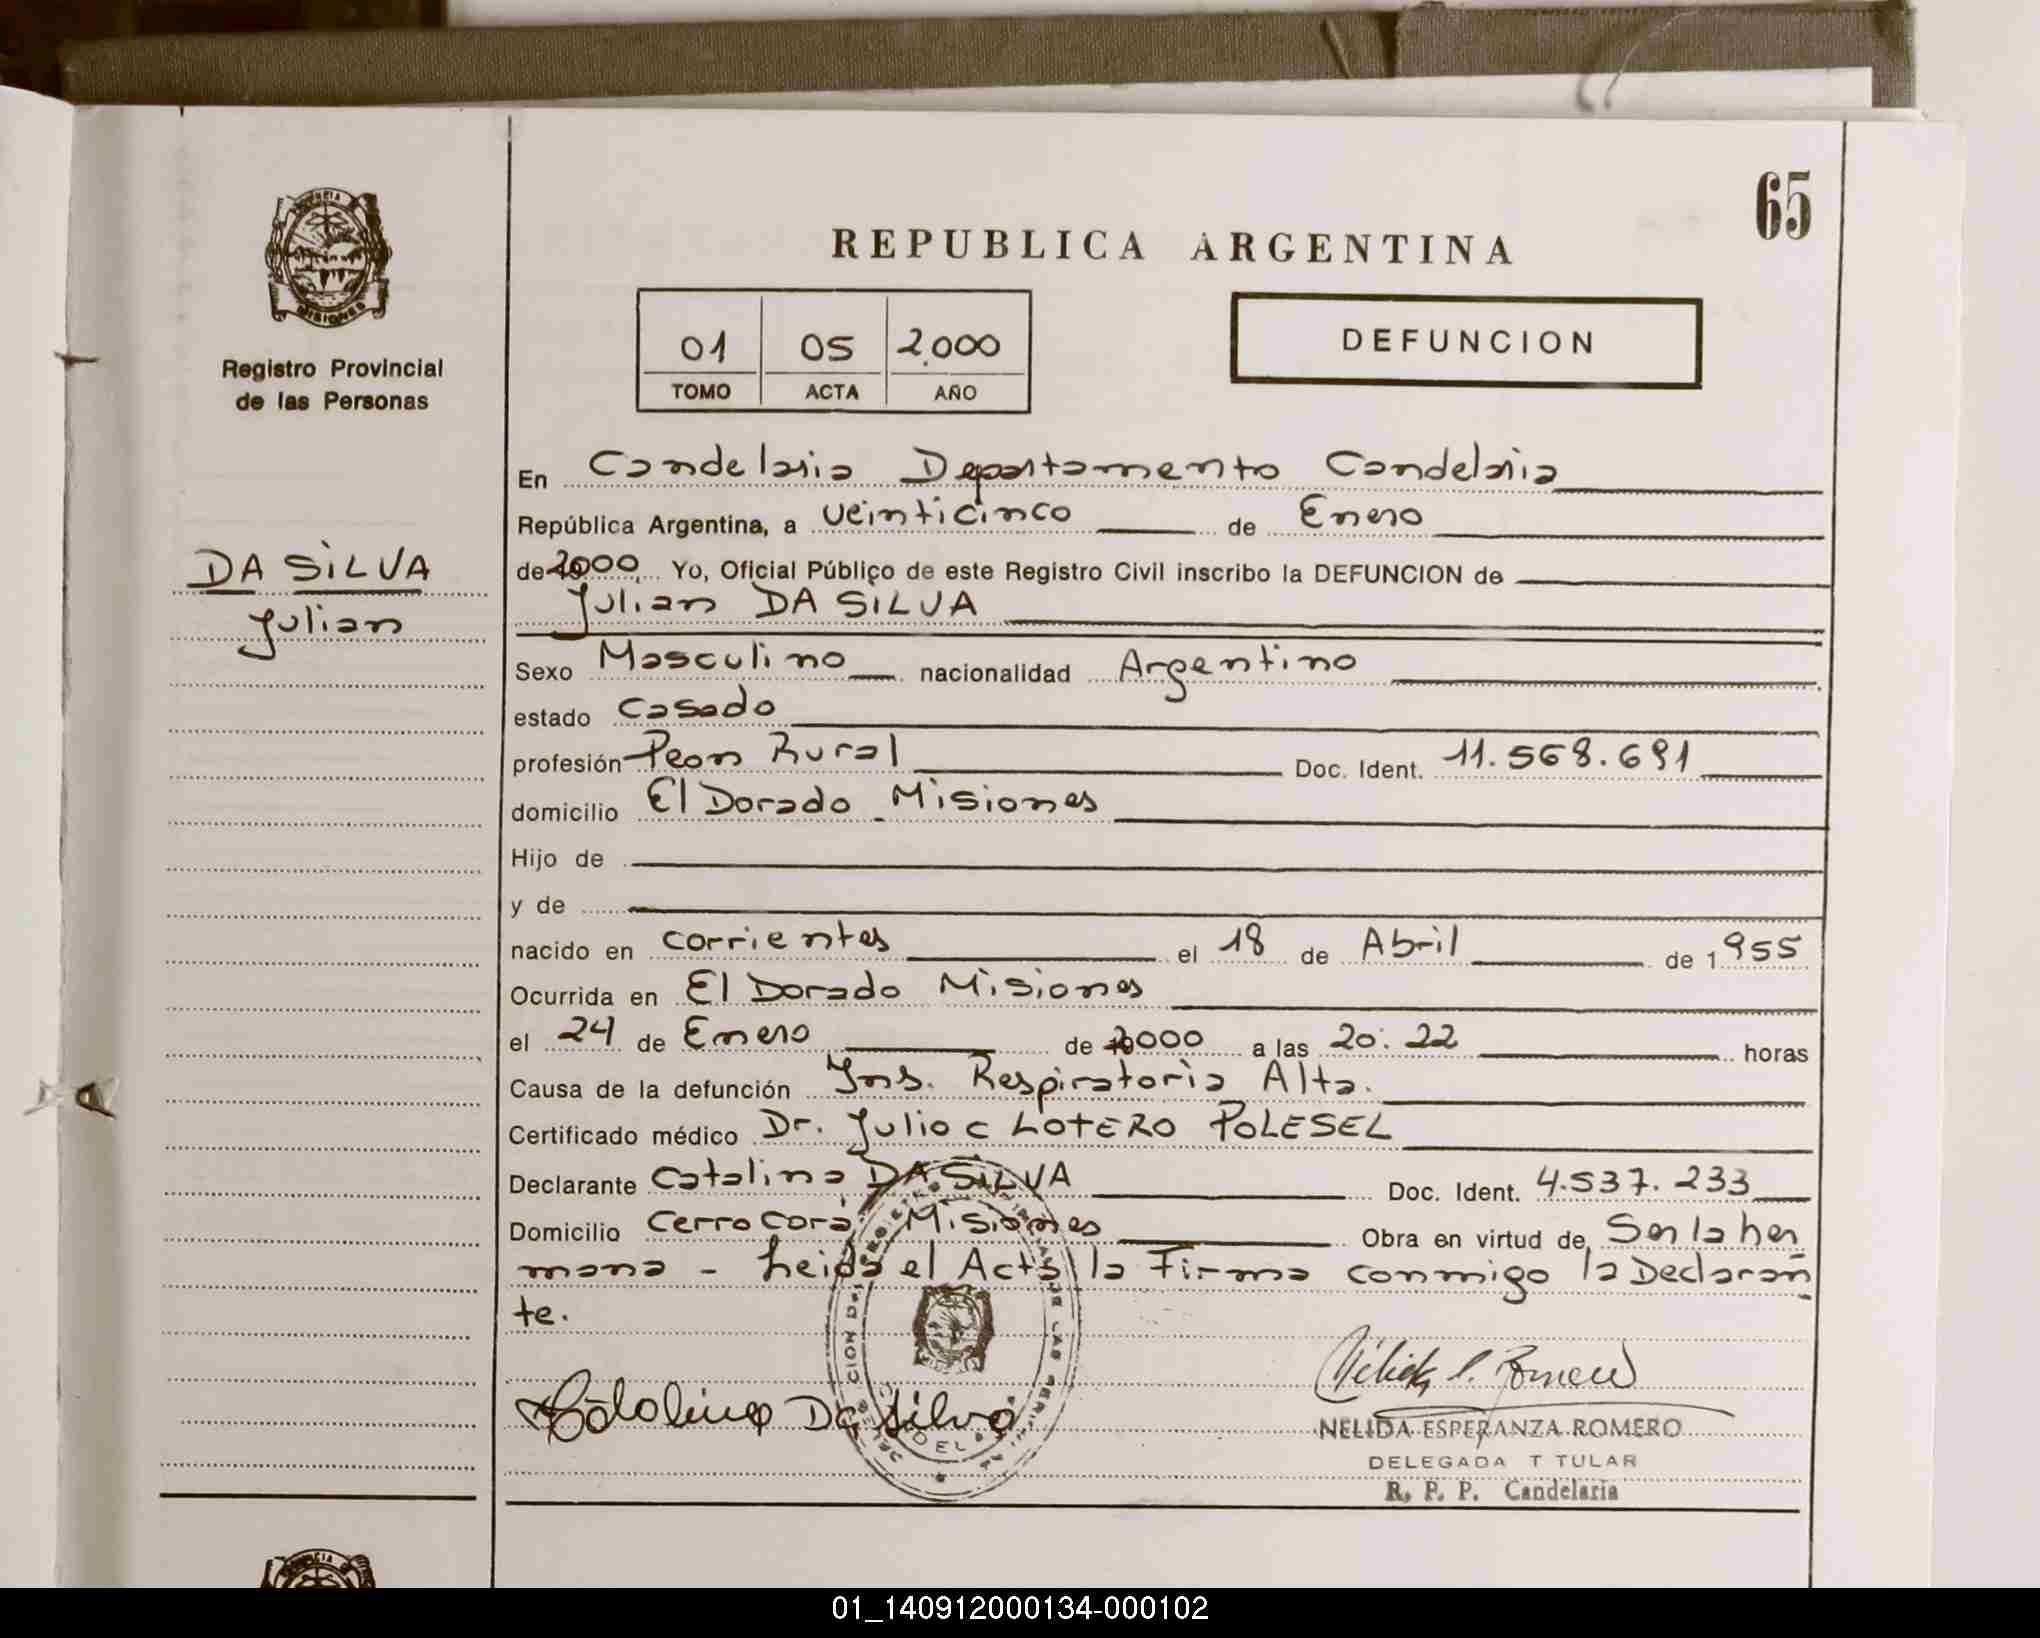 65
REPUBLICA ARGENTINA
MISIONES
Registro Provincial
de las Personas
01 05 2.000
TOMO ACTA AÑO
DEFUNCION
DA SILVA
Julian
En Candelaria Departamento Candelaria
República Argentina, a veinticinco de Enero
de 2000 Yo, Oficial Público de este Registro Civil inscribo la DEFUNCION de
Julian DA SILVA
Sexo Masculino nacionalidad Argentino
estado Casado
profesión Peon Rural Doc. Ident. 11.568.691
domicilio El Dorado - Misiones
Hijo de
y de
nacido en Corrientes el 18 de Abril de 1955
Ocurrida en El Dorado Misiones
el 24 de Enero de 2000 a las 20:22 horas
Causa de la defunción Ins. Respiratoria Alta.
Certificado médico Dr. Julio C LOTERO POLESEL
Declarante Catalina DA SILVA Doc. Ident. 4.537.233
Domicilio Cerro Corá Misiones Obra en virtud de Ser la her
mana - Leida el Acta la Firma conmigo la Declaran
te.
Catalina Da Silva
NELIDA ESPERANZA ROMERO
DELEGADA T TULAR
R. P. P. Candelaria
01_140912000134-000102